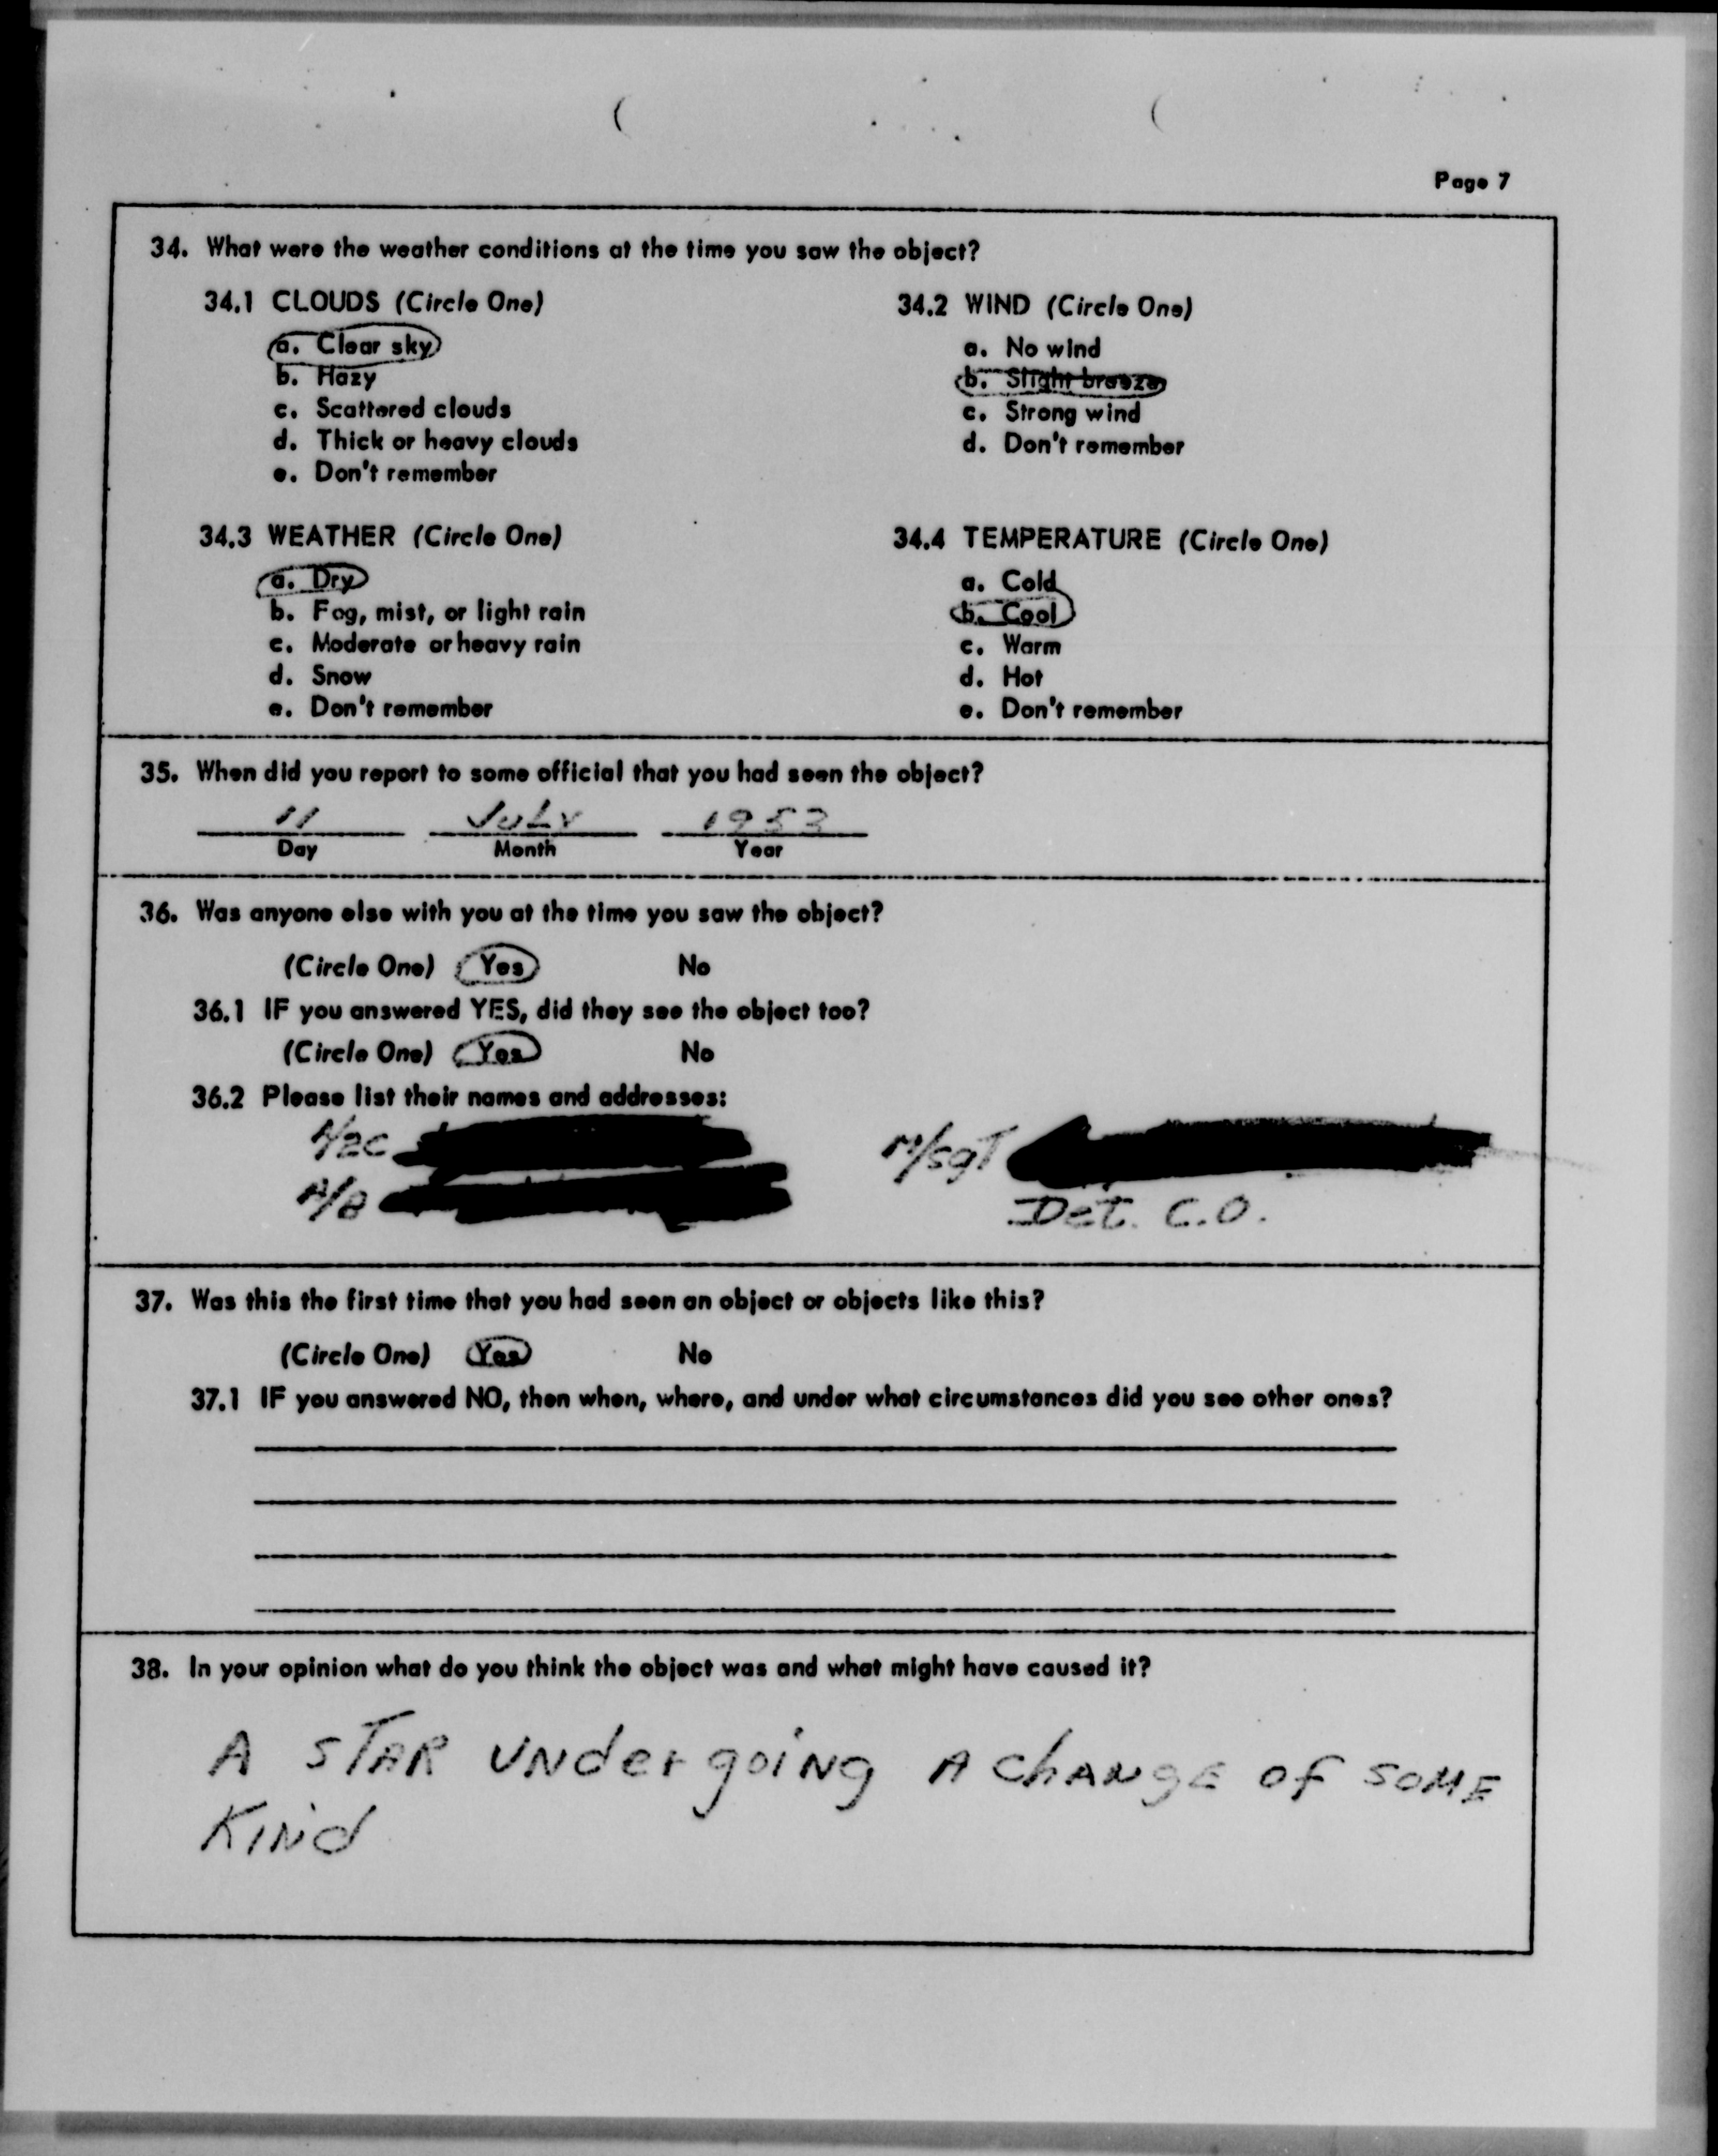 Page 7
34. What were the weather conditions at the time you saw the object?
34.1 CLOUDS (Circle One)
a. Clear sky
b. Hazy
c. Scattered clouds
d. Thick or heavy clouds
e. Don't remember
34.2 WIND (Circle One)
a. No wind
b. Slight breeze
c. Strong wind
d. Don't remember
34.3 WEATHER (Circle One)
a. Dry
b. Fog, mist, or light rain
c. Moderate or heavy rain
d. Snow
e. Don't remember
34.4 TEMPERATURE (Circle One)
a. Cold
b. Cool
c. Warm
d. Hot
e. Don't remember
35. When did you report to some official that you had seen the object?
11 JULY 1953
Day Month Year
36. Was anyone else with you at the time you saw the object?
(Circle One) Yes No
36.1 IF you answered YES, did they see the object too?
(Circle One) Yes No
36.2 Please list their names and addresses:
A/2C
A/B
M/SGT
Det. C.O.
37. Was this the first time that you had seen an object or objects like this?
(Circle One) Yes No
37.1 IF you answered NO, then when, where, and under what circumstances did you see other ones?
38. In your opinion what do you think the object was and what might have caused it?
A STAR UNdergoing A ChANgE of SOME
KINd